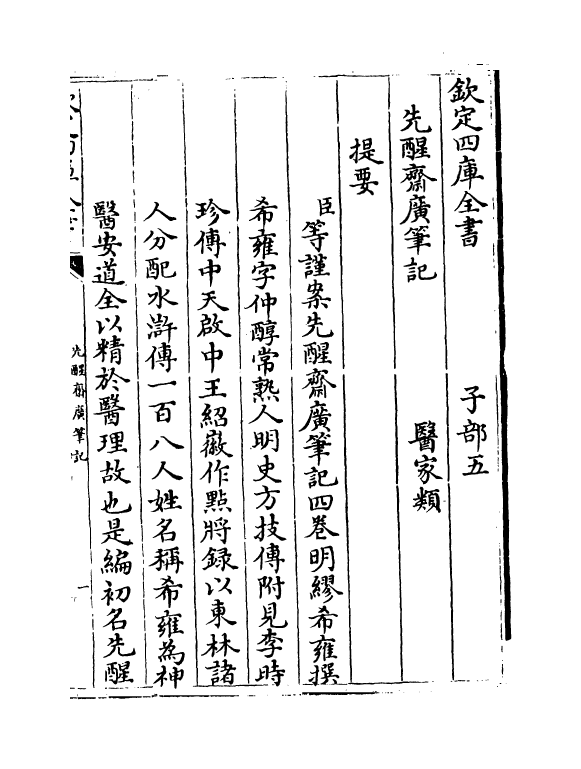 欽定四庫全書　子部五
先醒齋廣筆記　醫家類
提要
臣等謹案先醒齋廣筆記四卷明繆希雍撰
希雍字仲醇常熟人明史方技傳附見李時
珍傳中天啟中王紹徽作點將録以東林諸
人分配水滸傳一百八人姓名稱希雍為神
醫安道全以精於醫理故也是編初名先醒
先醒齋廣筆記
一